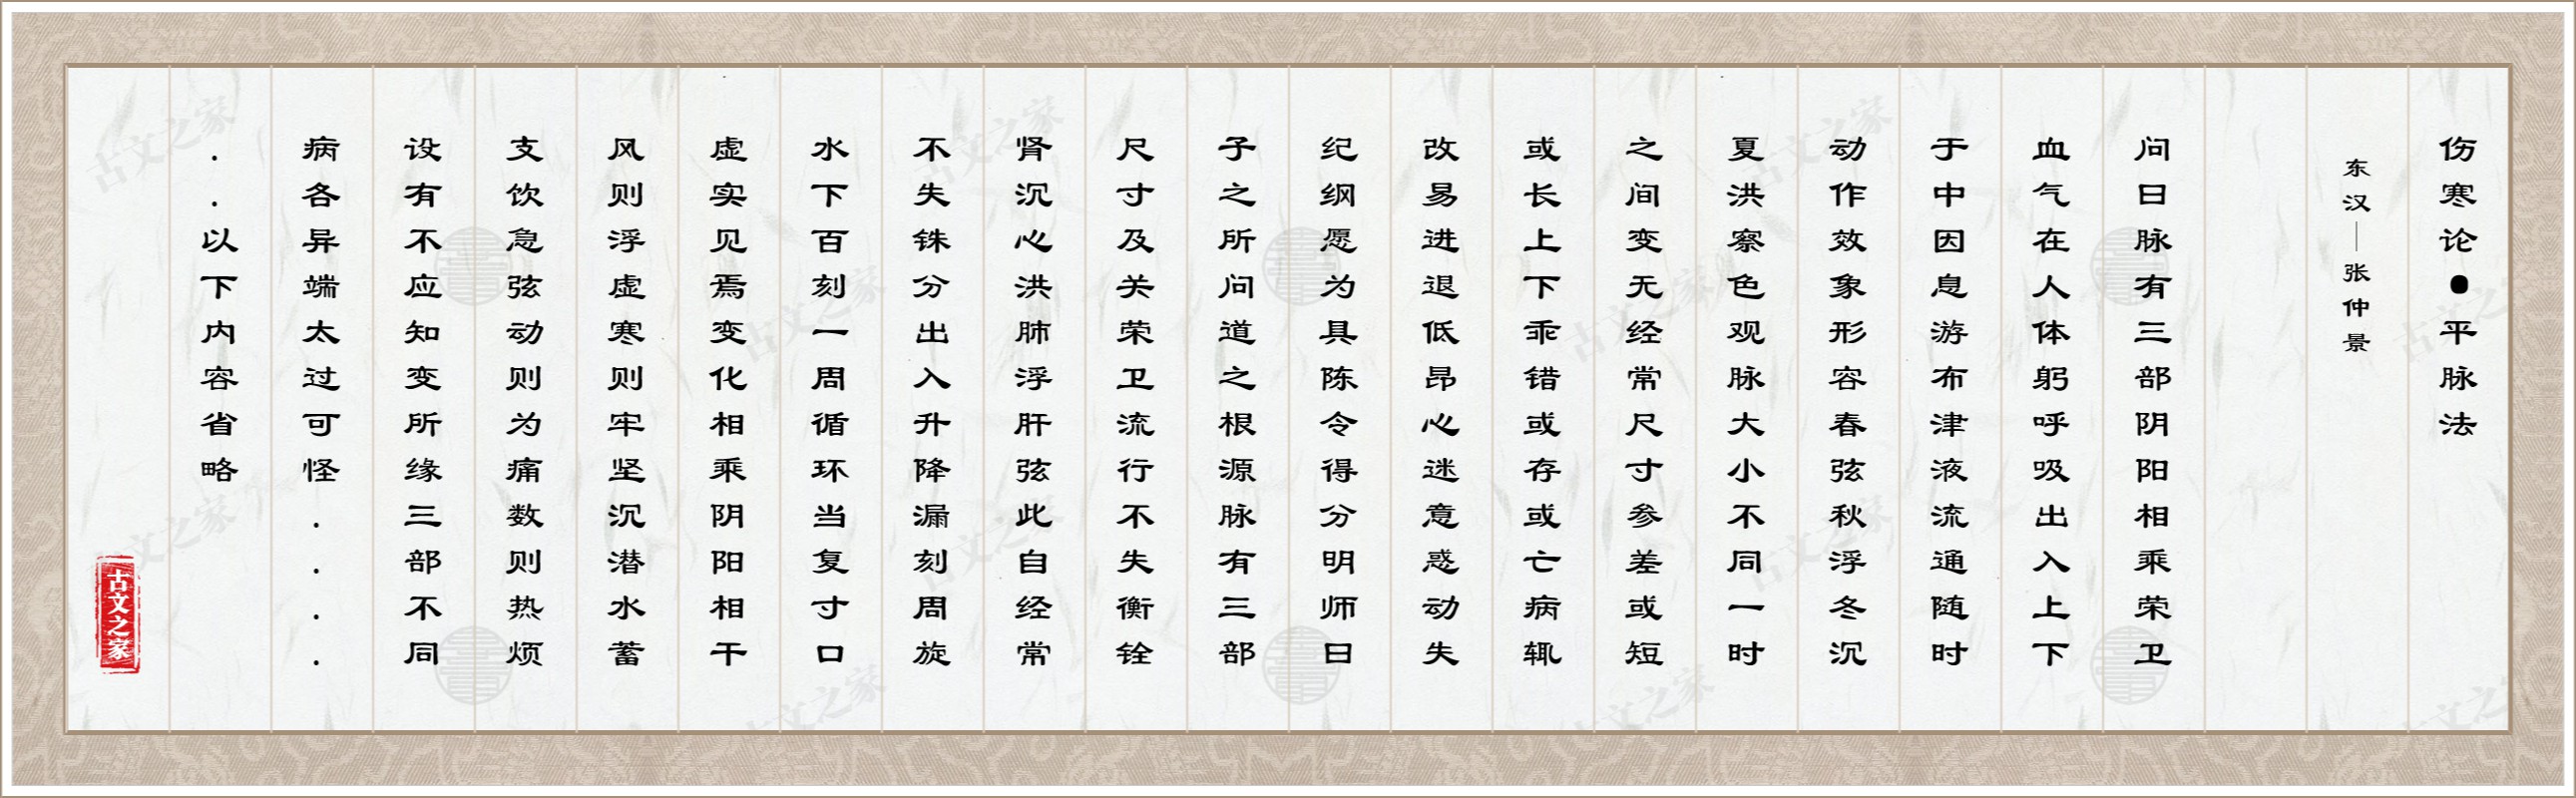 伤寒论●平脉法
东汉｜张仲景
问曰脉有三部阴阳相乘荣卫
血气在人体躬呼吸出入上下
于中因息游布津液流通随时
动作效象形容春弦秋浮冬沉
夏洪察色观脉大小不同一时
之间变无经常尺寸参差或短
或长上下乖错或存或亡病辄
改易进退低昂心迷意惑动失
纪纲愿为具陈令得分明师曰
子之所问道之根源脉有三部
尺寸及关荣卫流行不失衡铨
肾沉心洪肺浮肝弦此自经常
不失铢分出入升降漏刻周旋
水下百刻一周循环当复寸口
虚实见焉变化相乘阴阳相干
风则浮虚寒则牢坚沉潜水蓄
支饮急弦动则为痛数则热烦
设有不应知变所缘三部不同
病各异端太过可怪....
..以下内容省略
古文之家